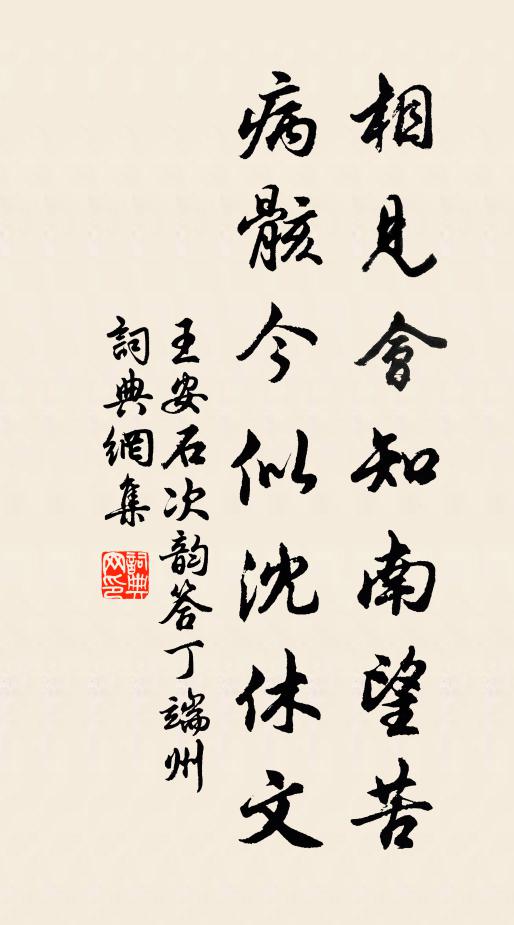 相見會知南望苦
病骸今似沈休文
王安石次韵答丁端州
詞典網集
詞典
网印